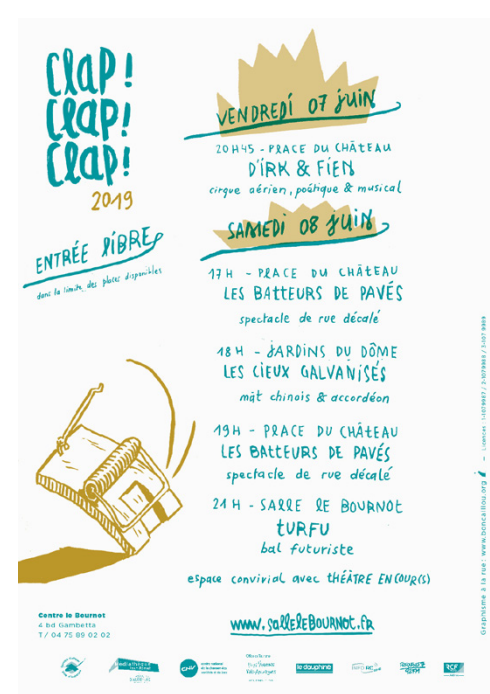 Clap!
Clap!
Clap!
2019
ENTRÉE LIBRE
dans la limite des places disponibles
VENDREDI 07 JUIN
20H45 - PLACE DU CHÂTEAU
D'IRK & FIEN
cirque aérien, poétique & musical
SAMEDI 08 JUIN
17H - PLACE DU CHÂTEAU
LES BATTEURS DE PAVÉS
spectacle de rue décalé
18H - JARDINS DU DÔME
LES CIEUX GALVANISÉS
mât chinois & accordéon
19H - PLACE DU CHÂTEAU
LES BATTEURS DE PAVÉS
spectacle de rue décalé
21H - SALLE LE BOURNOT
TURFU
bal futuriste
espace convivial avec THÉÂTRE EN COUR(S)
www.salleleBournot.fr
Centre le Bournot
4 bd Gambetta
T / 04 75 89 02 02
Graphisme à la rue: www.boncaillou.org
Licences : 1-1079987 / 2-1079988 / 3-1079989
le dauphiné
RCF